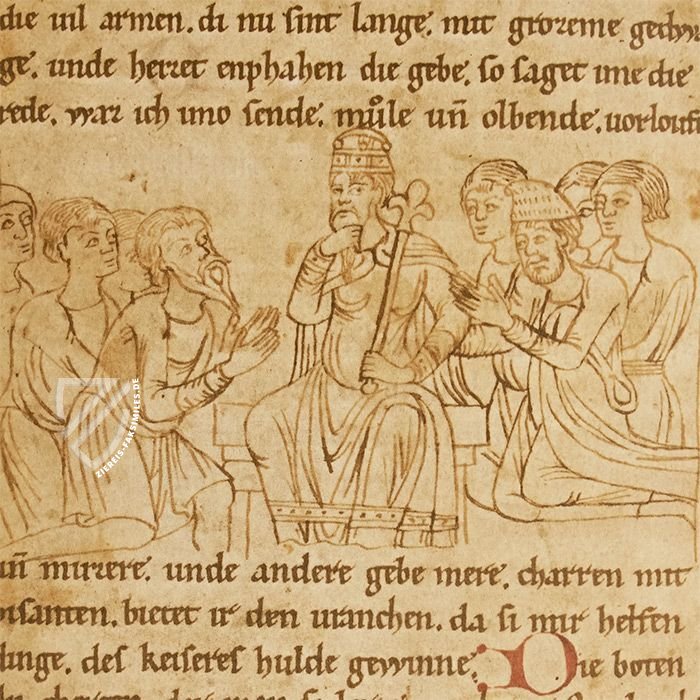 die uil armen. di nu sint lange. mit grozeme
ge. unde herret enphahen die gebe. so saget ime die
rede. war ich uno sende. můle uñ olbende. uorlouf
ZIEREIS-FAKSIMILES.DE
uñ mizere. unde andere gebe mere. charren mit
bisanten. bietet ir den uranchen. da si mir helfen
dinge. des keiseres hulde gewinne. Die boten